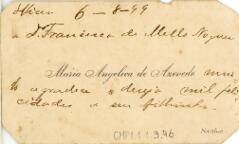 6-8-99
D. Francisca de Mello Nogueira
Maria Angelica de Azevedo muito
agradece e deseja mil feli
cidades a seu filhinho.
CMPL 1.1.9.46